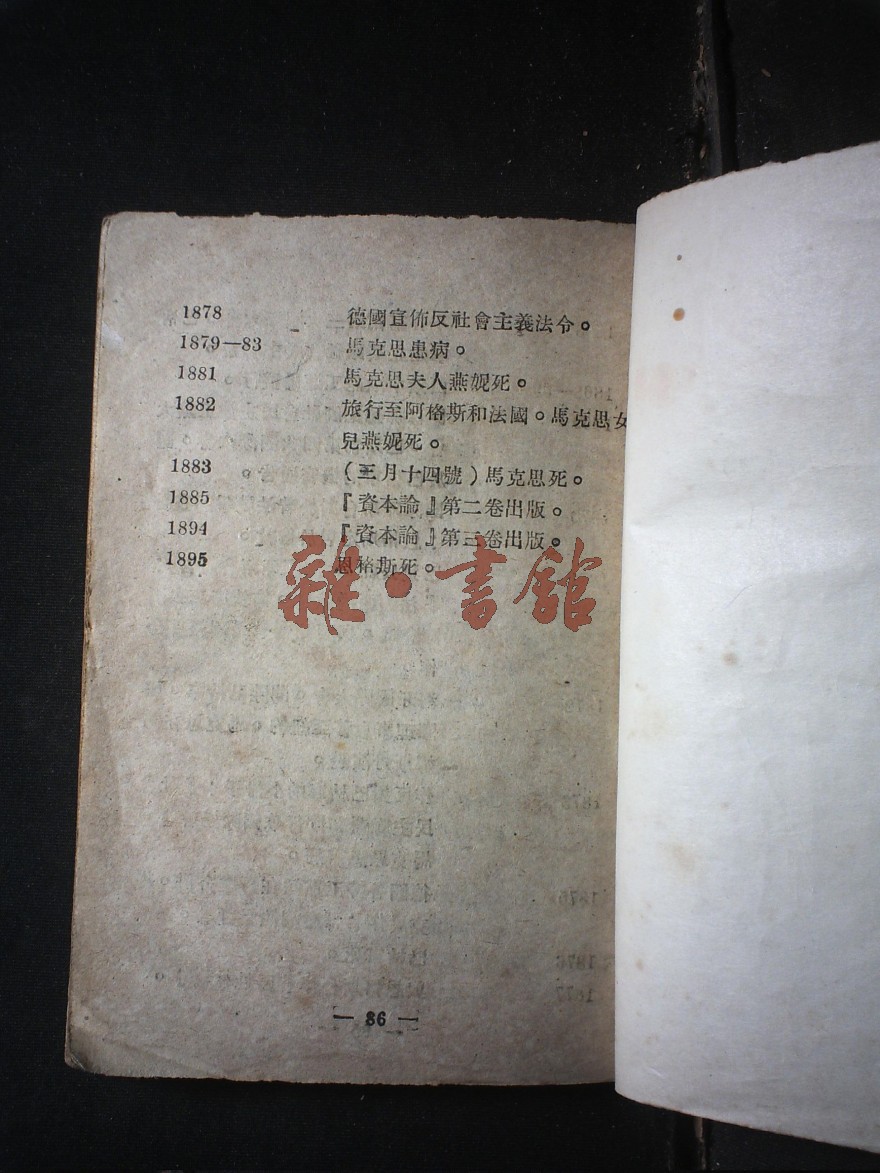 1878 德國宣佈反社會主義法令。
1879—83 馬克思患病。
1881 馬克思夫人燕妮死。
1882 旅行至阿格斯和法國。馬克思女
兒燕妮死。
1883 (三月十四號)馬克思死。
1885 『資本論』第二卷出版。
1894 『資本論』第三卷出版。
1895 恩格斯死。
雜·書館
— 86 —